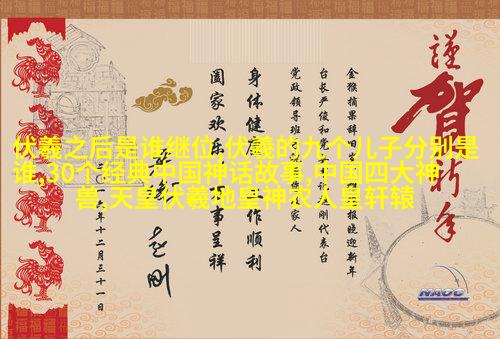 伏羲之后是谁继位,伏羲的九个儿子分别是
谁,30个经典中国神话故事,中国四大神
兽,天皇伏羲地皇神农人皇轩辕
謹賀新年
金猴摘果辞旧岁 报晓迎新年
台长严俊和党 刚代表台
党政领导班 家人
身体健康 工作顺利
阖家欢乐 万事呈祥
年十二月三十一日
NAOC